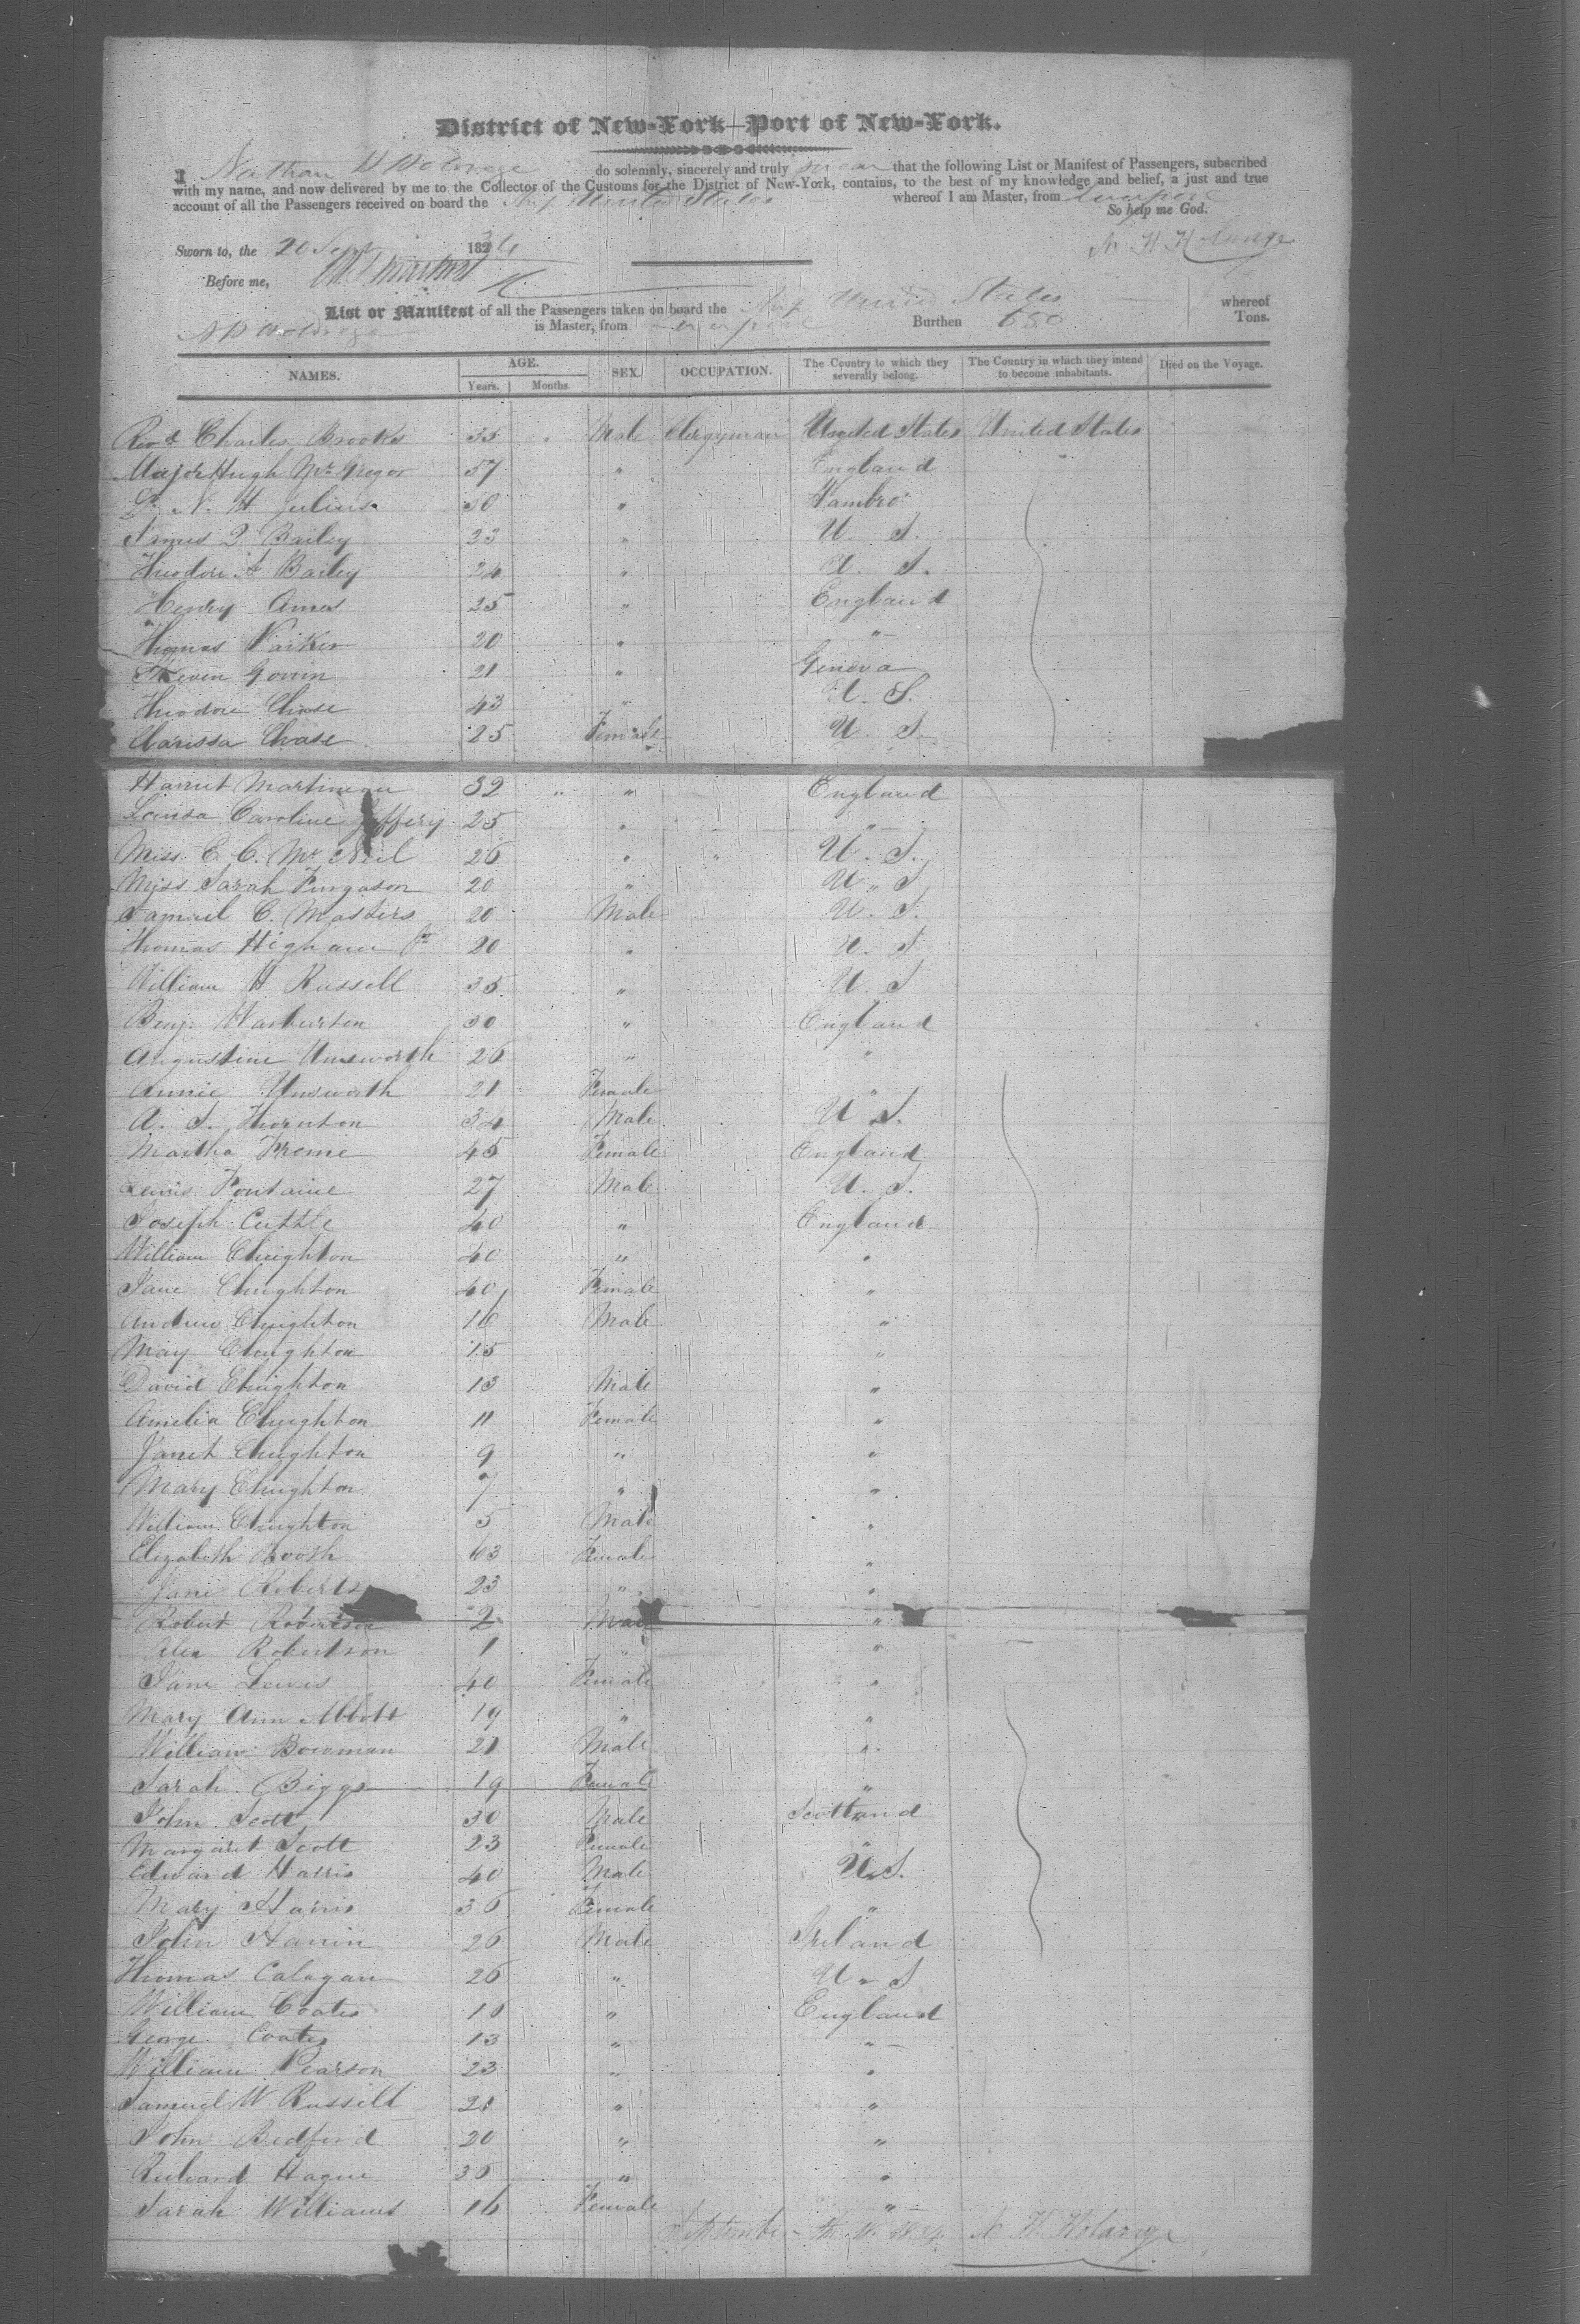 District of New-York—Port of New-York.
I Nathan H Holdrege do solemnly, sincerely and truly swear that the following List or Manifest of Passengers, subscribed
with my name, and now delivered by me to the Collector of the Customs for the District of New-York, contains, to the best of my knowledge and belief, a just and true
account of all the Passengers received on board the Ship United States whereof I am Master, from Liverpool
So help me God.
Sworn to, the 20 Sept 1834 N H Holdrege
Before me,
List or Manifest of all the Passengers taken on board the Ship United States whereof
N H Holdrege is Master, from Liverpool Burthen 650 Tons.
NAMES. AGE. Years. Months. SEX. OCCUPATION. The Country to which they severally belong. The Country in which they intend to become inhabitants. Died on the Voyage.
Revd. Charles Brooks 35 Male Clergyman United States United States
Major Hugh McGregor 57 " England "
Dr N. H Julius 50 " Hambro'
James Bailey 23 " U. S.
Theodore A Bailey 24 " U. S.
Henry Ames 25 " England
Thomas Parker 20 " "
Gonin 21 " Geneva
Theodore Chase 43 " U. S.
Clarissa Chase 25 Female U. S.
Harriet Martineau 32 " England
Louisa Caroline Jeffery 25 " "
Miss C. C. McNeil 26 " U. S.
Miss Sarah Furgason 20 " U. S
Samuel C. Masters 20 Male U. S.
Thomas Higham Jr 20 " U. S
William H Russell 35 " U. S
Benj. Warburton 30 " England
Augustine Unsworth 26 " "
Annie Unsworth 21 Female "
A. S. Thornton 34 Male U S.
Martha Freme 45 Female England
Lewis Fontaine 27 Male U. S.
Joseph Cuttle 40 " England
William Cleughton 40 " "
Jane Cleughton 40 Female "
Andrew Cleughton 16 Male "
May Cleughton 15 "
David Cleughton 13 Male "
Amelia Cleughton 11 Female "
Janet Cleughton 9 " "
Mary Cleughton 7 " "
William Cleughton 5 Male "
Elizabeth Booth 63 Female "
Jane Roberts 23 " "
Robert Robertson 2 Male "
Robertson 1 " "
Jane Lewis 40 Female "
Mary Ann Abbott 19 " "
William Bowman 21 Male "
Sarah Biggs 19 Female "
John Scott 30 Male Scotland
Margaret Scott 23 Female "
Edward Harris 40 Male U.S.
Mary Harris 36 Female "
John Harrin 26 Male Ireland
Thomas Calagan 26 " U - S
William Coates 16 " England
George Coates 13 " "
William Pearson 23 " "
Samuel W Russell 21 " "
John Bedford 20 " "
Richard Hague 36 " "
Sarah Williams 16 Female "
September 1834 N H Holdrege